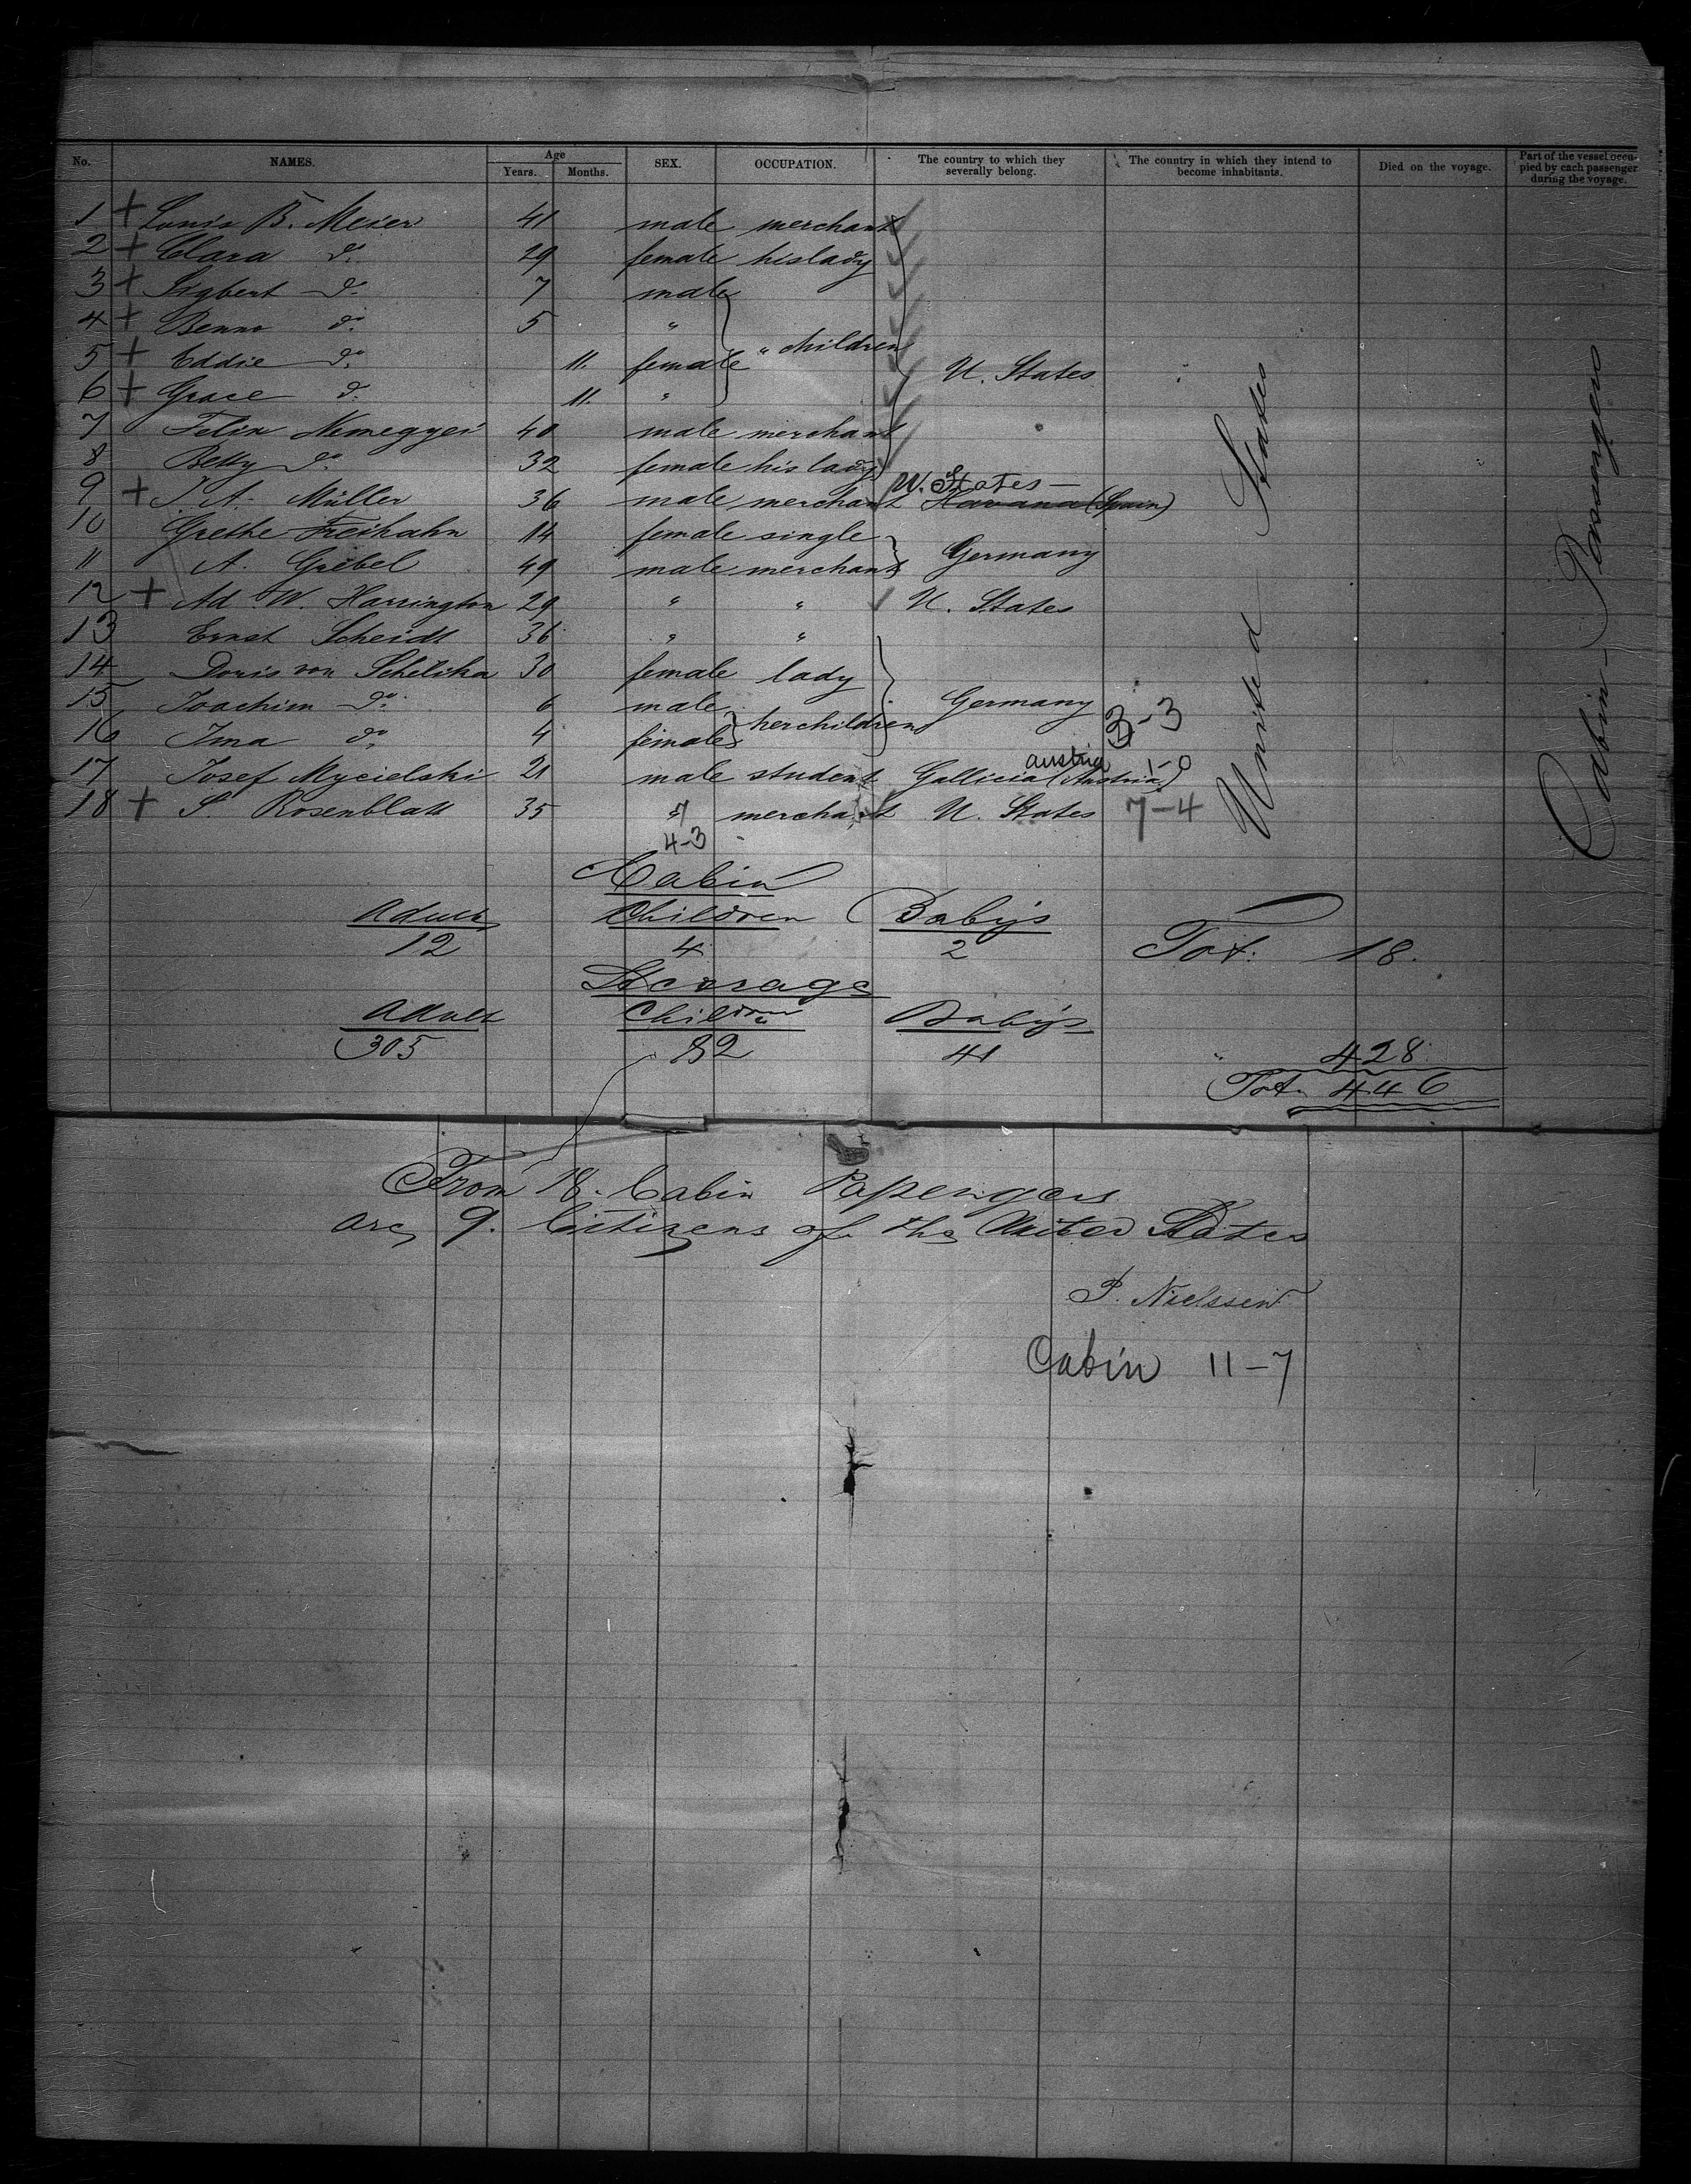 No. NAMES. Age Years. Months. SEX. OCCUPATION. The country to which they severally belong. The country in which they intend to become inhabitants. Died on the voyage. Part of the vessel occupied by each passenger during the voyage.
1 + Louis B. Meier 41 male merchant
2 + Clara do. 29 female his lady
3 + Sigbert do. 7 male
4 + Benno do. 5 "
5 + Eddie do. 11. female " children U. States
6 + Grace do. 11. "
7 Felix Nemegyei 40 male merchant
8 Betty do. 32 female his lady
U. States —
9 + J. A. Müller 36 male merchant Havana (Spain)
10 Grethe Freihahn 14 female single
11 A. Griebel 49 male merchant Germany
12 + Ad W. Harrington 29 " " U. States
13 Ernst Scheidt 36 " "
14 Doris von Schelika 30 female lady
15 Joachim do. 6 male Germany 3-3
16 Irma do. 4 females her children
Austria 1-0
17 Josef Mycielski 21 male student Gallicia (Austria)
18 + S. Rosenblatt 35 " merchant U. States 7-4
4-3
United States
Cabin-Passengers
Cabin
Adults Children Baby's
12 4 2 Tot: 18.
Steerage
Adult Children Baby's
305 82 41 " 428
Tot. 446
From 18. Cabin Passengers
are 9. Citizens of the United States
P. Nielssen
Cabin 11-7